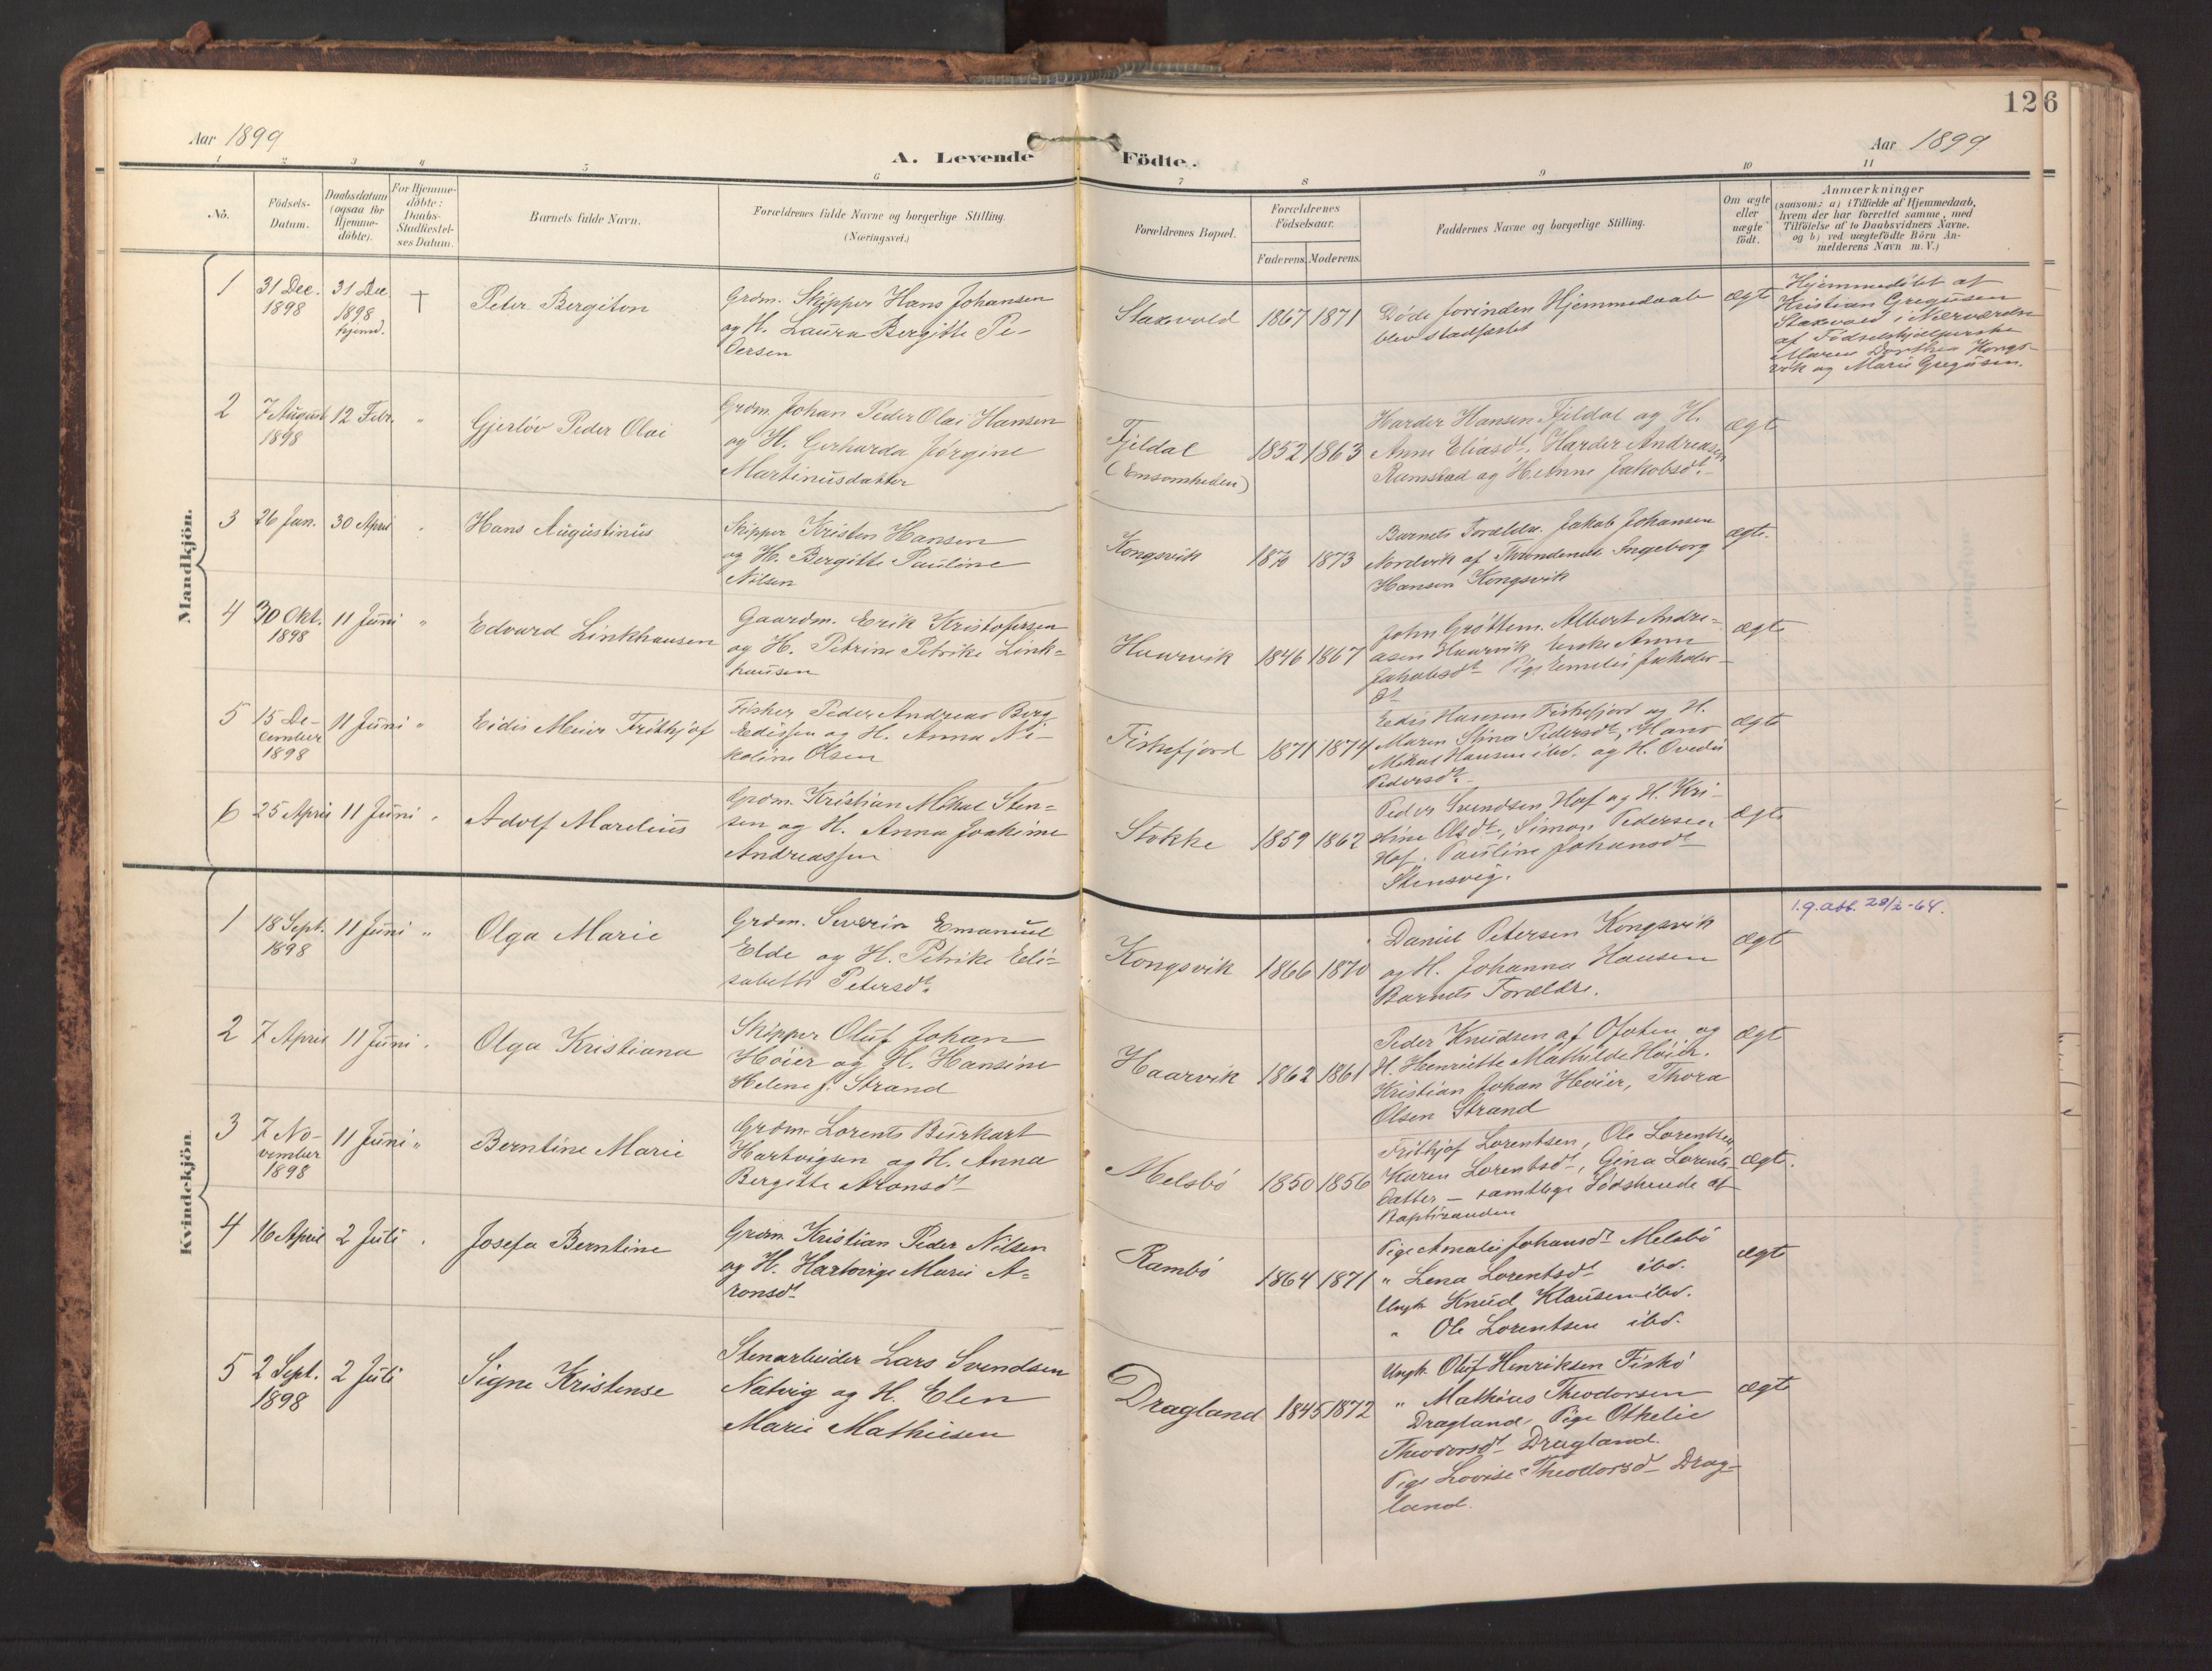 126
Aar 1899
A. Levende Födte.
Aar 1899
1 2 3 4 5 6 7 8 9 10 11
Nò.
Födsels-Datum.
Daabsdatum (ogsaa for Hjemme-döbte).
For Hjemme-döbte: Daabs-Stadfæstel-ses Datum.
Barnets fulde Navn.
Forældrenes fulde Navne og borgerlige Stilling.
(Næringsvei.)
Forældrenes Bopæl.
Forældrenes Födselsaar.
Faderens. Moderens.
Faddernes Navne og borgerlige Stilling.
Om ægte eller uægte födt.
Anmærkninger
(saasom: a) i Tilfælde af Hjemmedaab,
hvem der har forrettet samme, med
Tilföielse af to Daabsvidners Navne.
og b) ved uægtefödte Börn An-
melderens Navn m. V.)
Mandkjön.
1
31 Dec. 1898
31 Dec 1898 hjemd.
†
Peter Bergiton
Grdm. Skipper Hans Johansen
og H. Laura Bergitte Pe-
dersen
Staxvold
1867 1871
Døde forinden Hjemmedaab
blev stadfæstet
ægt
Hjemmedöbt af
Kristian Gregusen
Staxvold i Nærværelse
af Födselshjelperske
Maren Dorthea Kongs-
vik og Marie Gregusen.
2
7 August 1898
12 Febr.
"
Gjerløv Peder Olai
Grdm. Johan Peder Olai Hansen
og H. Gerharda Jørgine
Martinusdatter
Fjeldal
(Ensomheden)
1852 1863
Harder Hansen Fjeldal og H.
Anne Eliasdt. Harder Andreasen
Ramstad og H. Anne Jakobsdt.
ægt
3
26 Jan.
30 April
Hans Augustinus
Skipper Kristen Hansen
og H. Bergitte Pauline
Nilsen
Kongsvik
1870 1873
Barnets Forældre. Jakob Johansen
Nordvik af Throndenes Ingeborg
Hansen Kongsvik
ægte.
4
30 Okt. 1898
11 Juni
"
Edvard Linkhausen
Gaardm. Erik Kristofersen
og H. Petrine Petrike Link-
hausen
Haarvik
1846 1867
John Grøttem. Albert Andre-
asen Haarvik Enke Anne
Jakobsdt. Pige Emelie Jakobs-
dt
ægt
5
15 De-
cember
1898
11 Juni
"
Eidis Meier Frithjof
Fisker Peder Andreas Berg
Eedissen og H. Anna Ni-
koline Olsen
Fiskefjord
1871 1874
Eedis Hansen Fiskefjord og H.
Maren Stina Pedersdt, Hans
Mikal Hansen ibd. og H. Ovedie
Pedersdt.
ægt
6
25 April
11 Juni
Adolf Marelius
Grdm. Kristian Mikal Sten-
sen og H. Anna Joakime
Andreassen
Stokke
1859 1862
Peder Svendsen Hof og H. Kri-
stine Olsdt., Simon Pedersen
Hof. Pauline Johansdt
Stensvig.
ægt
Kvindekjön.
1
18 Sept. 1898
11 Juni
"
Olga Marie
Grdm. Severin Emanuel
Elde og H. Petrike Eli-
sabeth Petersdt.
Kongsvik
1866 1870
Daniel Petersen Kongsvik
og H. Johanna Hansen
Barnets Forældre.
ægt
1.g.att. 28/2-64.
2
7 April
11 Juni
Olga Kristiana
Skipper Oluf Johan
Høier og H. Hansine
Helene f. Strand
Haarvik
1862 1861
Peder Knudsen af Ofoten og
H. Henriette Mathilde Høier.
Kristian Johan Høier, Thora
Olsen Strand
ægt
3
7 No-
vember
1898
11 Juni
"
Berntine Marie
Grdm. Lorents Burkart
Hartvigsen og H. Anna
Bergitte Aronsdt
Melsbö
1850 1856
Frithjof Lorentsen, Ole Lorentsen
Karen Lorentsdt, Gina Lorents-
datter — samtlige Södskende af
Baptisanden
ægt.
4
16 April
2 Juli
Josefa Berntine
Grdm Kristian Peder Nilsen
og H. Hartvige Marie A-
ronsdt
Rambö
1864 1871
Pige Amalie Johansdt Melsbö
" Lena Lorentsdt ibd.
Ungk. Knud Klausen ibd.
" Ole Lorentsen ibd.
ægt
5
2 Sept. 1898
2 Juli
Signe Kristense
Stenarbeider Lars Svendsen
Natvig og H. Elen
Marie Mathiesen
Dragland
1845 1872
Ungk. Oluf Henriksen Fiskö
" Mathias Theodorsen
Dragland, Pige Othelie
Theodorsdt Dragland.
Pige Lovise Theodorsdt Drag-
land.
ægt